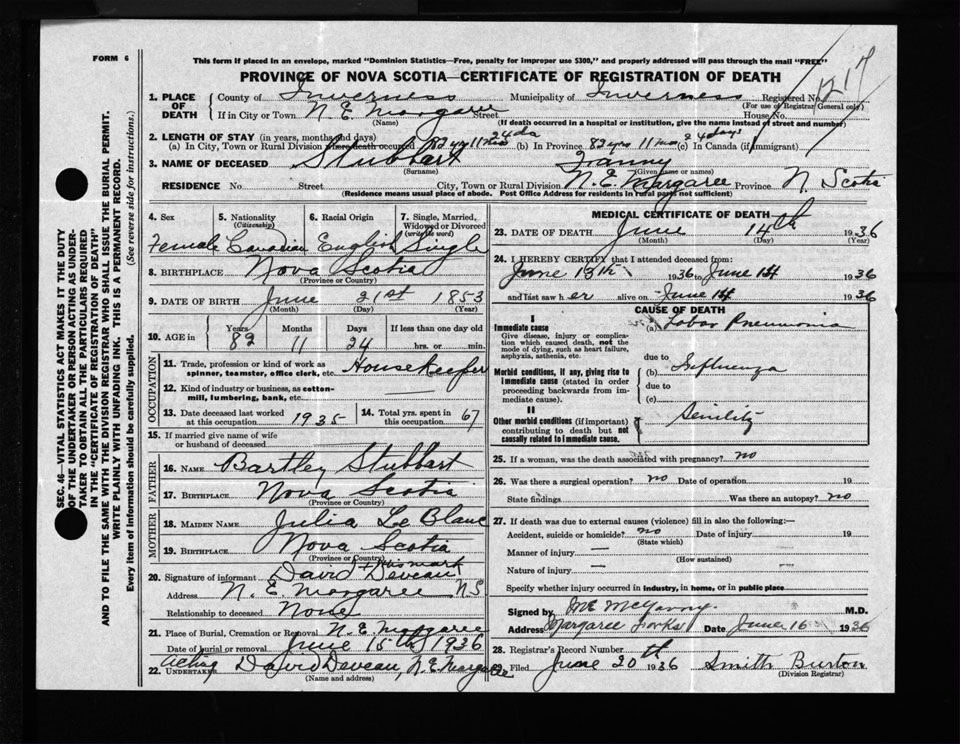 FORM 6
This form if placed in an envelope, marked "Dominion Statistics—Free, penalty for improper use $300," and properly addressed will pass through the mail "FREE"
PROVINCE OF NOVA SCOTIA—CERTIFICATE OF REGISTRATION OF DEATH
1217
1. PLACE OF DEATH
County of Inverness Municipality of Inverness Registered No.
(For use of Registrar General only)
If in City or Town N. E. Margaree Street House No.
(Name) (If death occurred in a hospital or institution, give name instead of street and number)
2. LENGTH OF STAY (in years, months and days)
(a) In City, Town or Rural Division where death occurred 82 yrs 11 mos 24 da (b) In Province 82 yrs 11 mo 24 days (c) In Canada (if immigrant)
3. NAME OF DECEASED Stubbart Fanny
(Surname) (Given name or names)
RESIDENCE No. Street City, Town or Rural Division N. E. Margaree Province N. Scotia
(Residence means usual place of abode. Post Office Address for residents in rural parts not sufficient)
4. Sex 5. Nationality (Citizenship) 6. Racial Origin 7. Single, Married, Widowed or Divorced (write the word)
Female Canadian English Single
8. BIRTHPLACE Nova Scotia
(Province or Country)
9. DATE OF BIRTH June 21st 1853
(Month) (Day) (Year)
10. AGE in Years Months Days If less than one day old
82 11 24 hrs. or min.
OCCUPATION
11. Trade, profession or kind of work as spinner, teamster, office clerk, etc. Housekeeper
12. Kind of industry or business, as cotton-mill, lumbering, bank, etc. —
13. Date deceased last worked at this occupation 1935 14. Total yrs. spent in this occupation 67
15. If married give name of wife or husband of deceased
FATHER
16. NAME Bartley Stubbart
17. BIRTHPLACE Nova Scotia
(Province or Country)
MOTHER
18. MAIDEN NAME Julia Le Blanc
19. BIRTHPLACE Nova Scotia
(Province or Country)
20. Signature of informant David + Deveau his mark
Address N. E. Margaree N S
Relationship to deceased None
21. Place of Burial, Cremation or Removal N. E. Margaree
Date of burial or removal June 15th 1936
22. UNDERTAKER Acting David Deveau, N. E. Margaree
(Name and address)
MEDICAL CERTIFICATE OF DEATH
23. DATE OF DEATH June 14th 1936
(Month) (Day) (Year)
24. I HEREBY CERTIFY that I attended deceased from:
June 13th 1936 to June 14 1936
and last saw her alive on June 14 1936
CAUSE OF DEATH
I
Immediate cause (a) Lobar Pneumonia
Give disease, injury or complication which caused death, not the mode of dying, such as heart failure, asphyxia, asthenia, etc.
due to
Morbid conditions, if any, giving rise to immediate cause (stated in order proceeding backwards from immediate).
(b) Influenza
due to
(c)
II
Other morbid conditions (if important) contributing to death but not causally related to immediate cause.
Senility
25. If a woman, was the death associated with pregnancy? no
26. Was there a surgical operation? no Date of operation 19
State findings Was there an autopsy? no
27. If death was due to external causes (violence) fill in also the following:—
Accident, suicide or homicide? no Date of injury 19
(State which)
Manner of injury —
(How sustained)
Nature of injury —
Specify whether injury occurred in industry, in home, or in public place
Signed by M.D.
Address Margaree Forks Date June 16 1936
28. Registrar's Record Number
29. Filed June 20th 1936 Smith Burton
(Division Registrar)
SEC. 46—VITAL STATISTICS ACT MAKES IT THE DUTY
OF THE UNDERTAKER OR PERSON ACTING AS UNDER-
TAKER TO OBTAIN ALL THE PARTICULARS REQUIRED
IN THE "CERTIFICATE OF REGISTRATION OF DEATH"
AND TO FILE THE SAME WITH THE DIVISION REGISTRAR WHO SHALL ISSUE THE BURIAL PERMIT.
WRITE PLAINLY WITH UNFADING INK. THIS IS A PERMANENT RECORD.
Every item of Information should be carefully supplied. (See reverse side for instructions.)